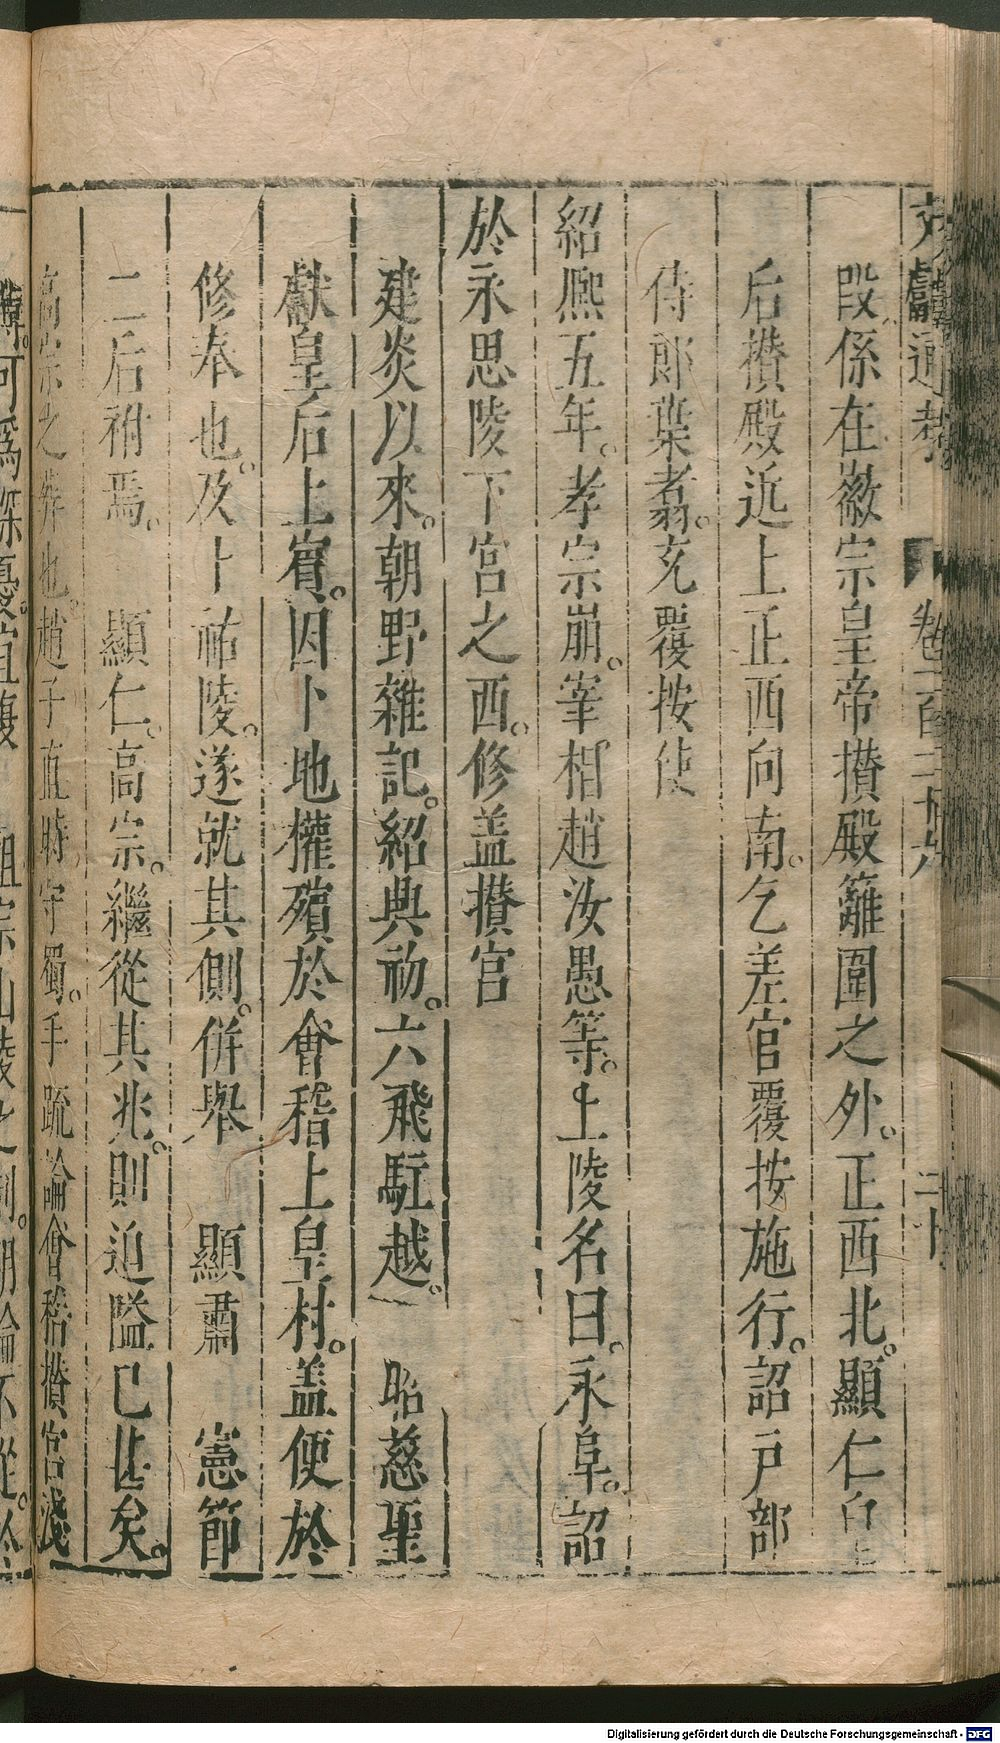 文獻通考 卷一百二十六 二十
段係在徽宗皇帝攅殿籬圍之外。正西北。顯仁皇
后攅殿近上正西向南。乞差官覆按施行。詔戸部
侍郎葉翥。充覆按使
紹熈五年。孝宗崩。宰相趙汝愚等。上陵名曰。永阜。詔
於永思陵下宮之西。修盖攅宮
建炎以來。朝野雜記。紹興初。六飛駐越。 昭慈聖
獻皇后上賓。因卜地權殯於會稽上皇村。盖便於
修奉也。及卜祐陵。遂就其側。併舉 顯肅 憲節
二后祔焉。 顯仁。高宗。繼從其兆。則迫隘已甚矣。
高宗之葬也。趙子直時守蜀。手疏論會稽攅宮淺
薄。可爲深憂。 祖宗山陵之制。朝論不從。於
Digitalisierung gefördert durch die Deutsche Forschungsgemeinschaft - DFG